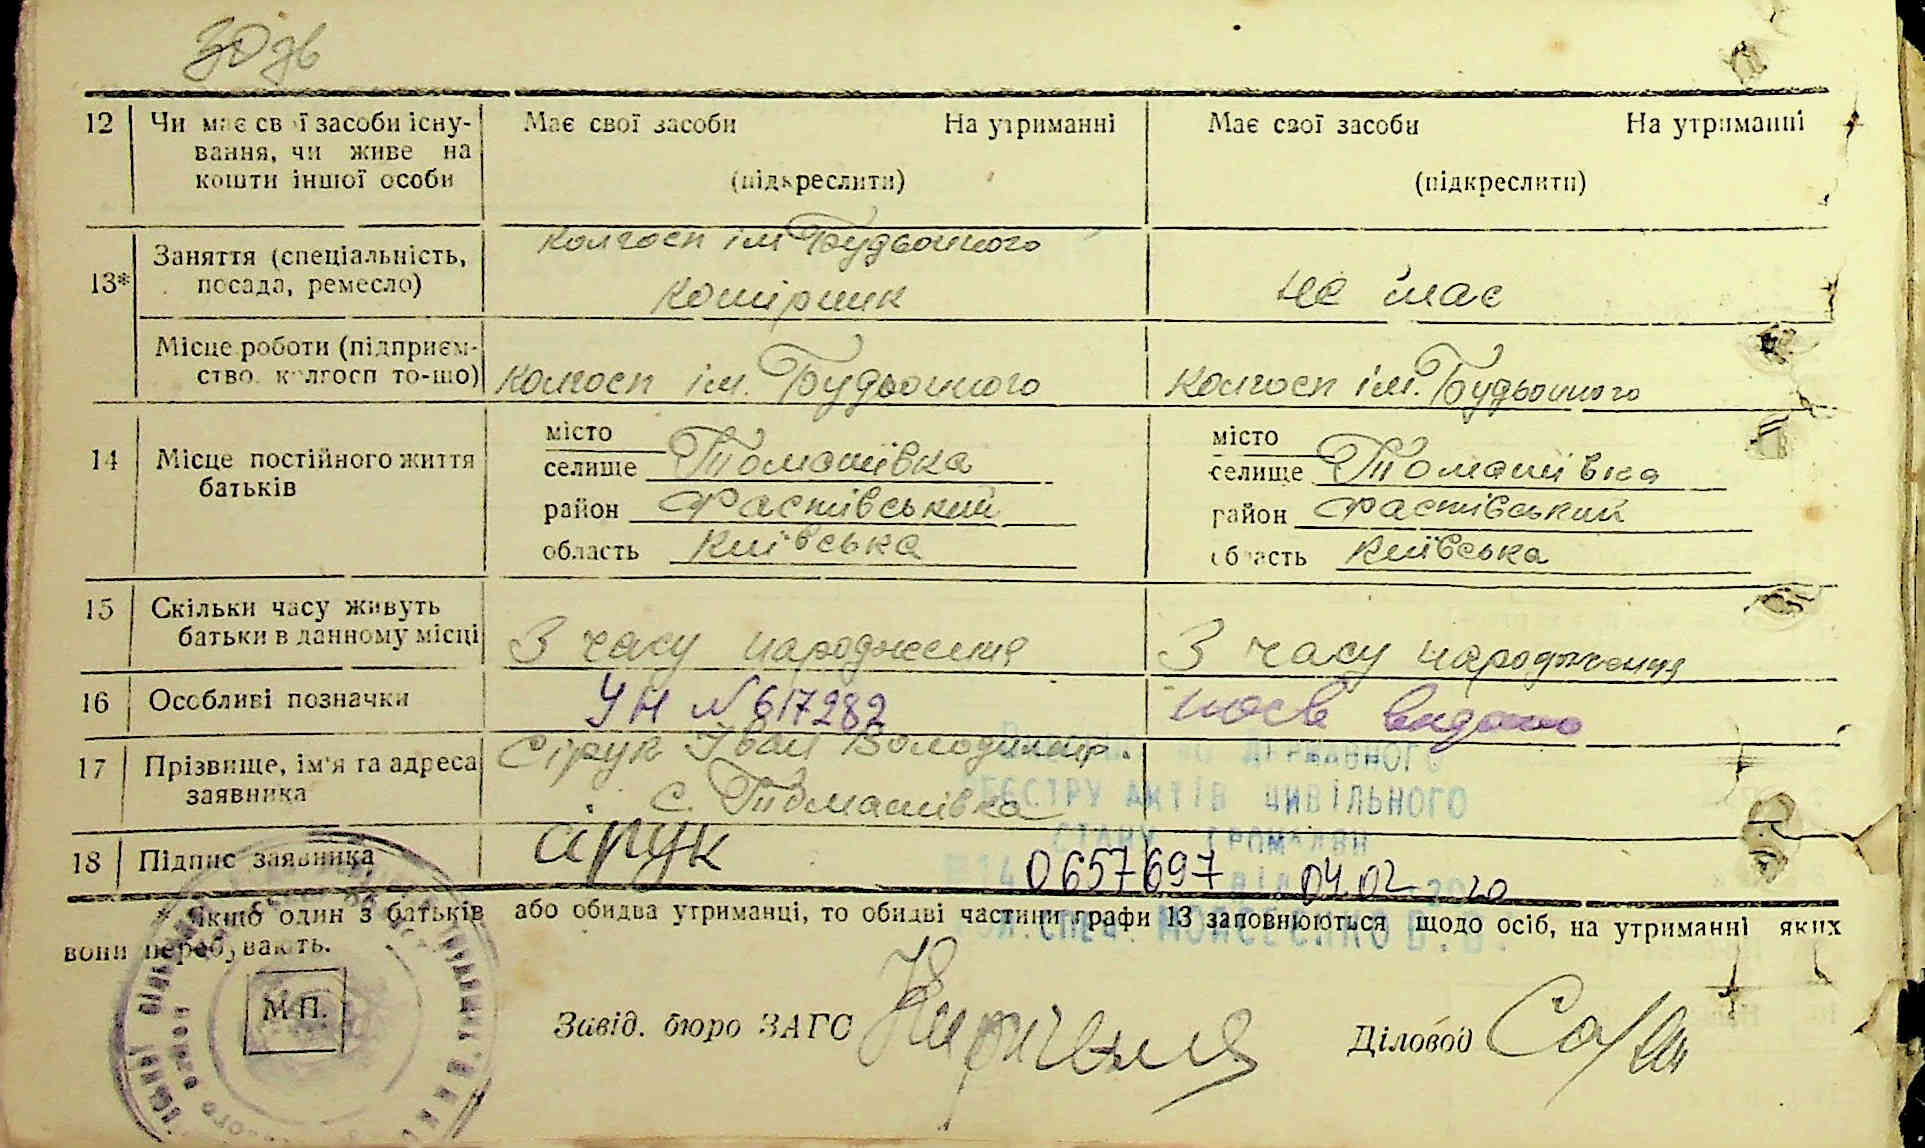 30 дв
12 Чи має свої засоби існу- Має свої засоби На утриманні Має свої засоби На утриманні
вання, чи живе на
кошти іншої особи (підкреслити) (підкреслити)
колгосп ім Будьонного
13* Заняття (спеціальність,
посада, ремесло) комірник не має
Місце роботи (підприєм-
ство, колгосп то-що) колгосп ім. Будьонного колгосп ім. Будьонного
місто місто
14 Місце постійного життя селище Томашівка селище Томашівка
батьків район Фастівський район Фастівський
область Київська область Київська
15 Скільки часу живуть
батьки в данному місці З часу народження З часу народження
16 Особливі позначки УН № 617282 видано
17 Прізвище, ім'я та адреса Сірук Іван Володимир.
заявника с. Томашівка
ДЕРЖАВНОГО
РЕЄСТРУ АКТІВ ЦИВІЛЬНОГО
СТАНУ ГРОМАДЯН
18 Підпис заявника Сірук
0657697 від 04.02 2020
СПЕЦ. МОЙСЕЄНКО В.В.
* Якщо один з батьків або обидва утриманці, то обидві частини графи 13 заповнюються щодо осіб, на утриманні яких
вони перебувають.
М.П. Завід. бюро ЗАГС Діловод